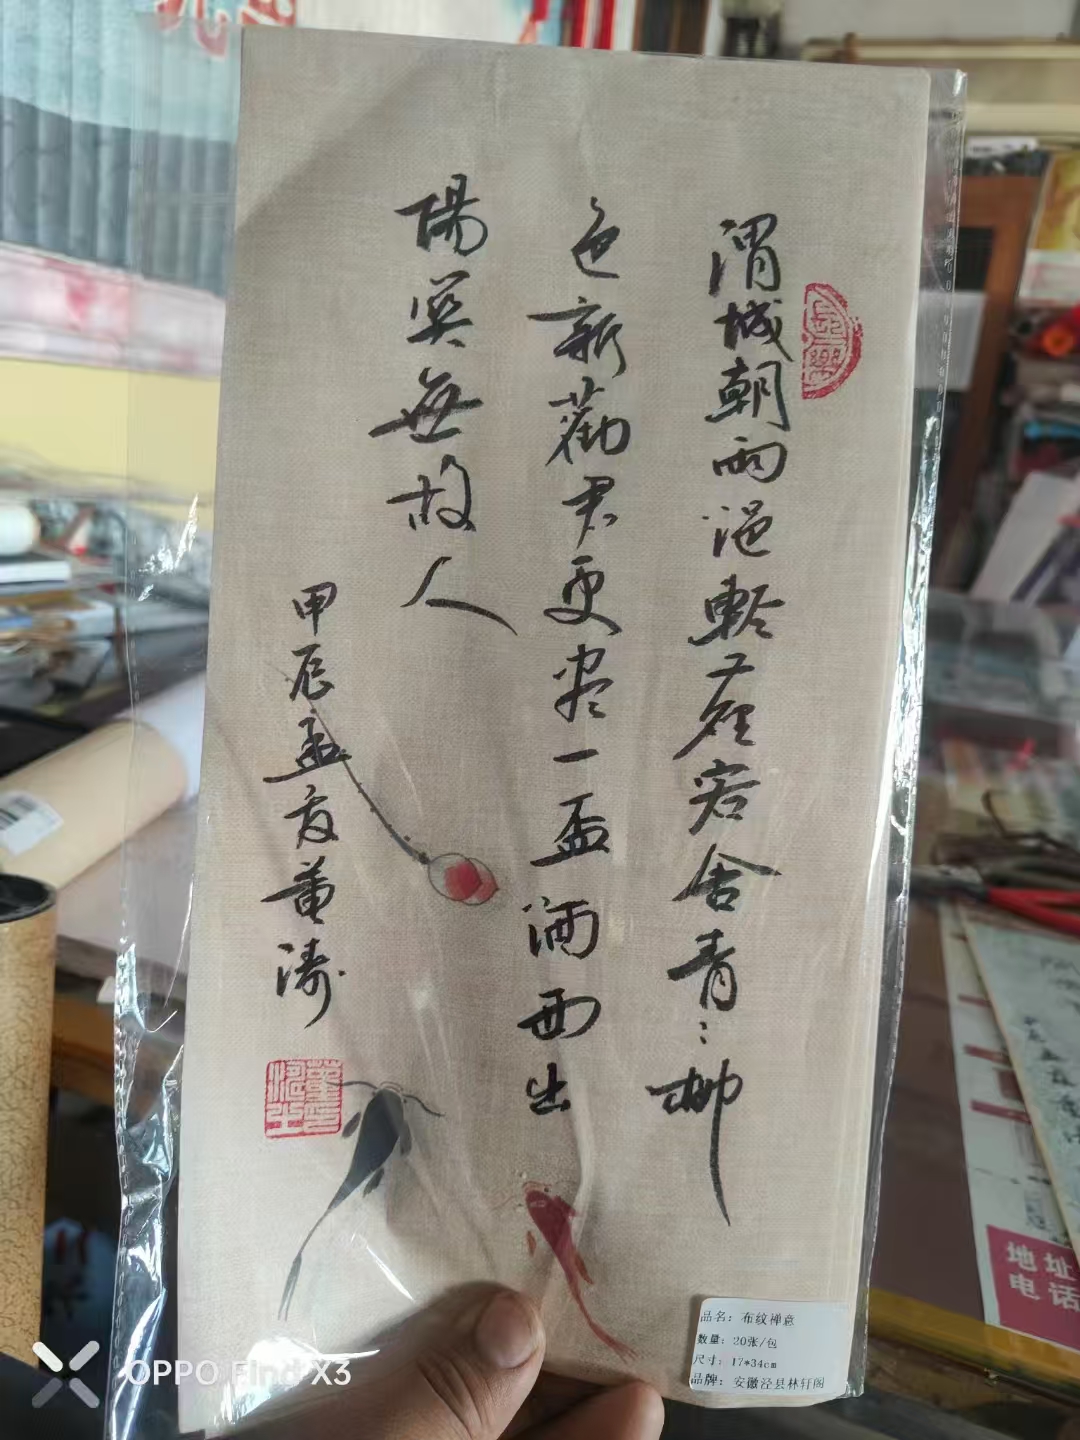 渭城朝雨浥輕塵客舍青〻柳
色新勸君更盡一盃酒西出
陽關無故人
甲辰孟夏董濤
長樂
品名：布纹禅意
数量：20张/包
尺寸：17*34cm
品牌：安徽泾县林轩阁
地址
电话
OPPO Find X3